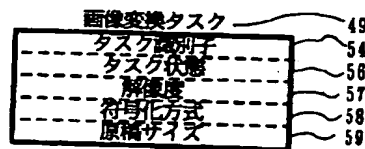 画像変換タスク 49
タスク識別子 54
タスク状態 56
解像度 57
符号化方式 58
原稿サイズ 59